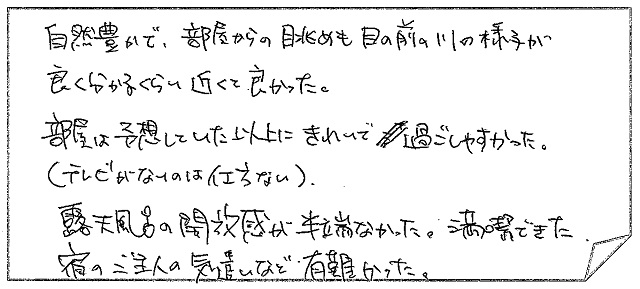 自然豊かで、部屋からの眺めも目の前の川の様子が
良く分かるぐらい近くて良かった。
部屋は予想していた以上にきれいで過ごしやすかった。
(テレビがないのは仕方ない).
露天風呂の開放感が半端なかった。満喫できた
宿のご主人の気遣いなど有難かった。